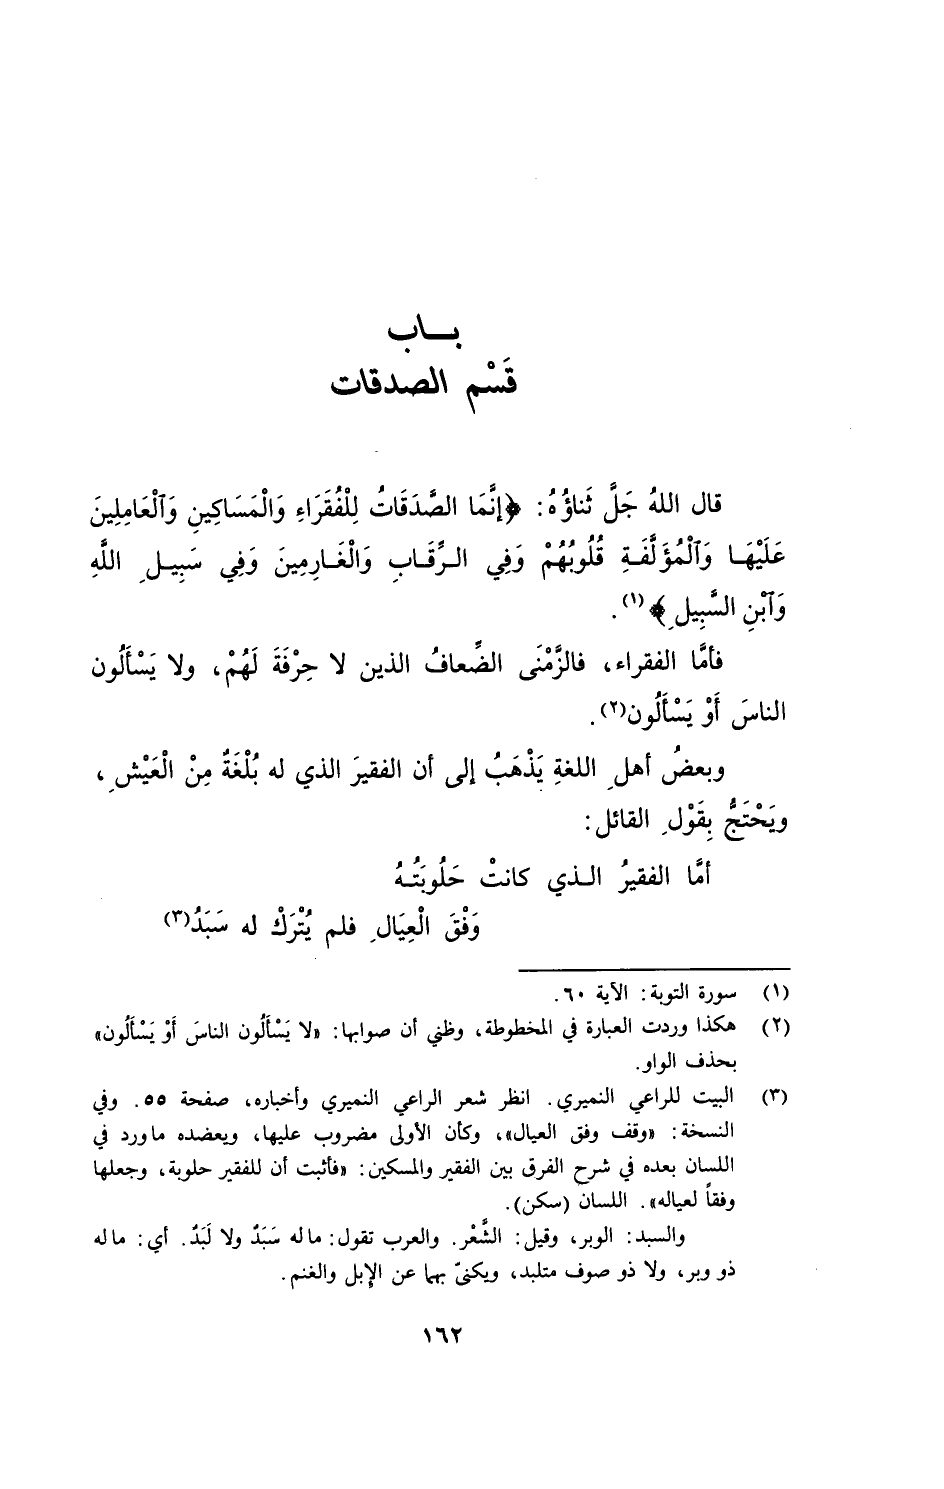 بــاب
قَسْم الصدقات
قال اللهُ جَلَّ ثَناؤُهُ: ﴿إنَّمَا الصَّدَقَاتُ لِلْفُقَرَاءِ وَالْمَسَاكِينِ وَٱلْعَامِلِينَ
عَلَيْهَا وَٱلْمُؤَلَّفَةِ قُلُوبُهُمْ وَفِي الرِّقَابِ وَالْغَارِمِينَ وَفِي سَبِيلِ اللَّهِ
وَٱبْنِ السَّبِيلِ﴾(١).
فأمَّا الفقراء، فالزَّمْنَى الضِّعافُ الذين لا حِرْفَةَ لَهُمْ، ولا يَسْأَلُون
الناسَ أَوْ يَسْأَلُون(٢).
وبعضُ أهلِ اللغةِ يَذْهَبُ إلى أن الفقيرَ الذي له بُلْغَةٌ مِنْ الْعَيْشِ،
ويَحْتَجُّ بِقَوْلِ القائل:
أمَّا الفقيرُ الـذي كانتْ حَلُوبَتُـهُ
وَفْقَ الْعِيَالِ فلم يُتْرَكْ له سَبَدُ(٣)
(١) سورة التوبة: الآية ٦٠.
(٢) هكذا وردت العبارة في المخطوطة، وظني أن صوابها: «لا يَسْأَلُون الناسَ أَوْ يَسْأَلُون»
بحذف الواو.
(٣) البيت للراعي النميري. انظر شعر الراعي النميري وأخباره، صفحة ٥٥. وفي
النسخة: «وقف وفق العيال»، وكأن الأولى مضروب عليها، ويعضده ماورد في
اللسان بعده في شرح الفرق بين الفقير والمسكين: «فأثبت أن للفقير حلوبة، وجعلها
وفقاً لعياله». اللسان (سكن).
والسبد: الوبر، وقيل: الشَّعْر. والعرب تقول: ماله سَبَدٌ ولا لَبَدٌ. أي: ماله
ذو وبر، ولا ذو صوف متلبد، ويكنىّ بهما عن الإبل والغنم.
١٦٢